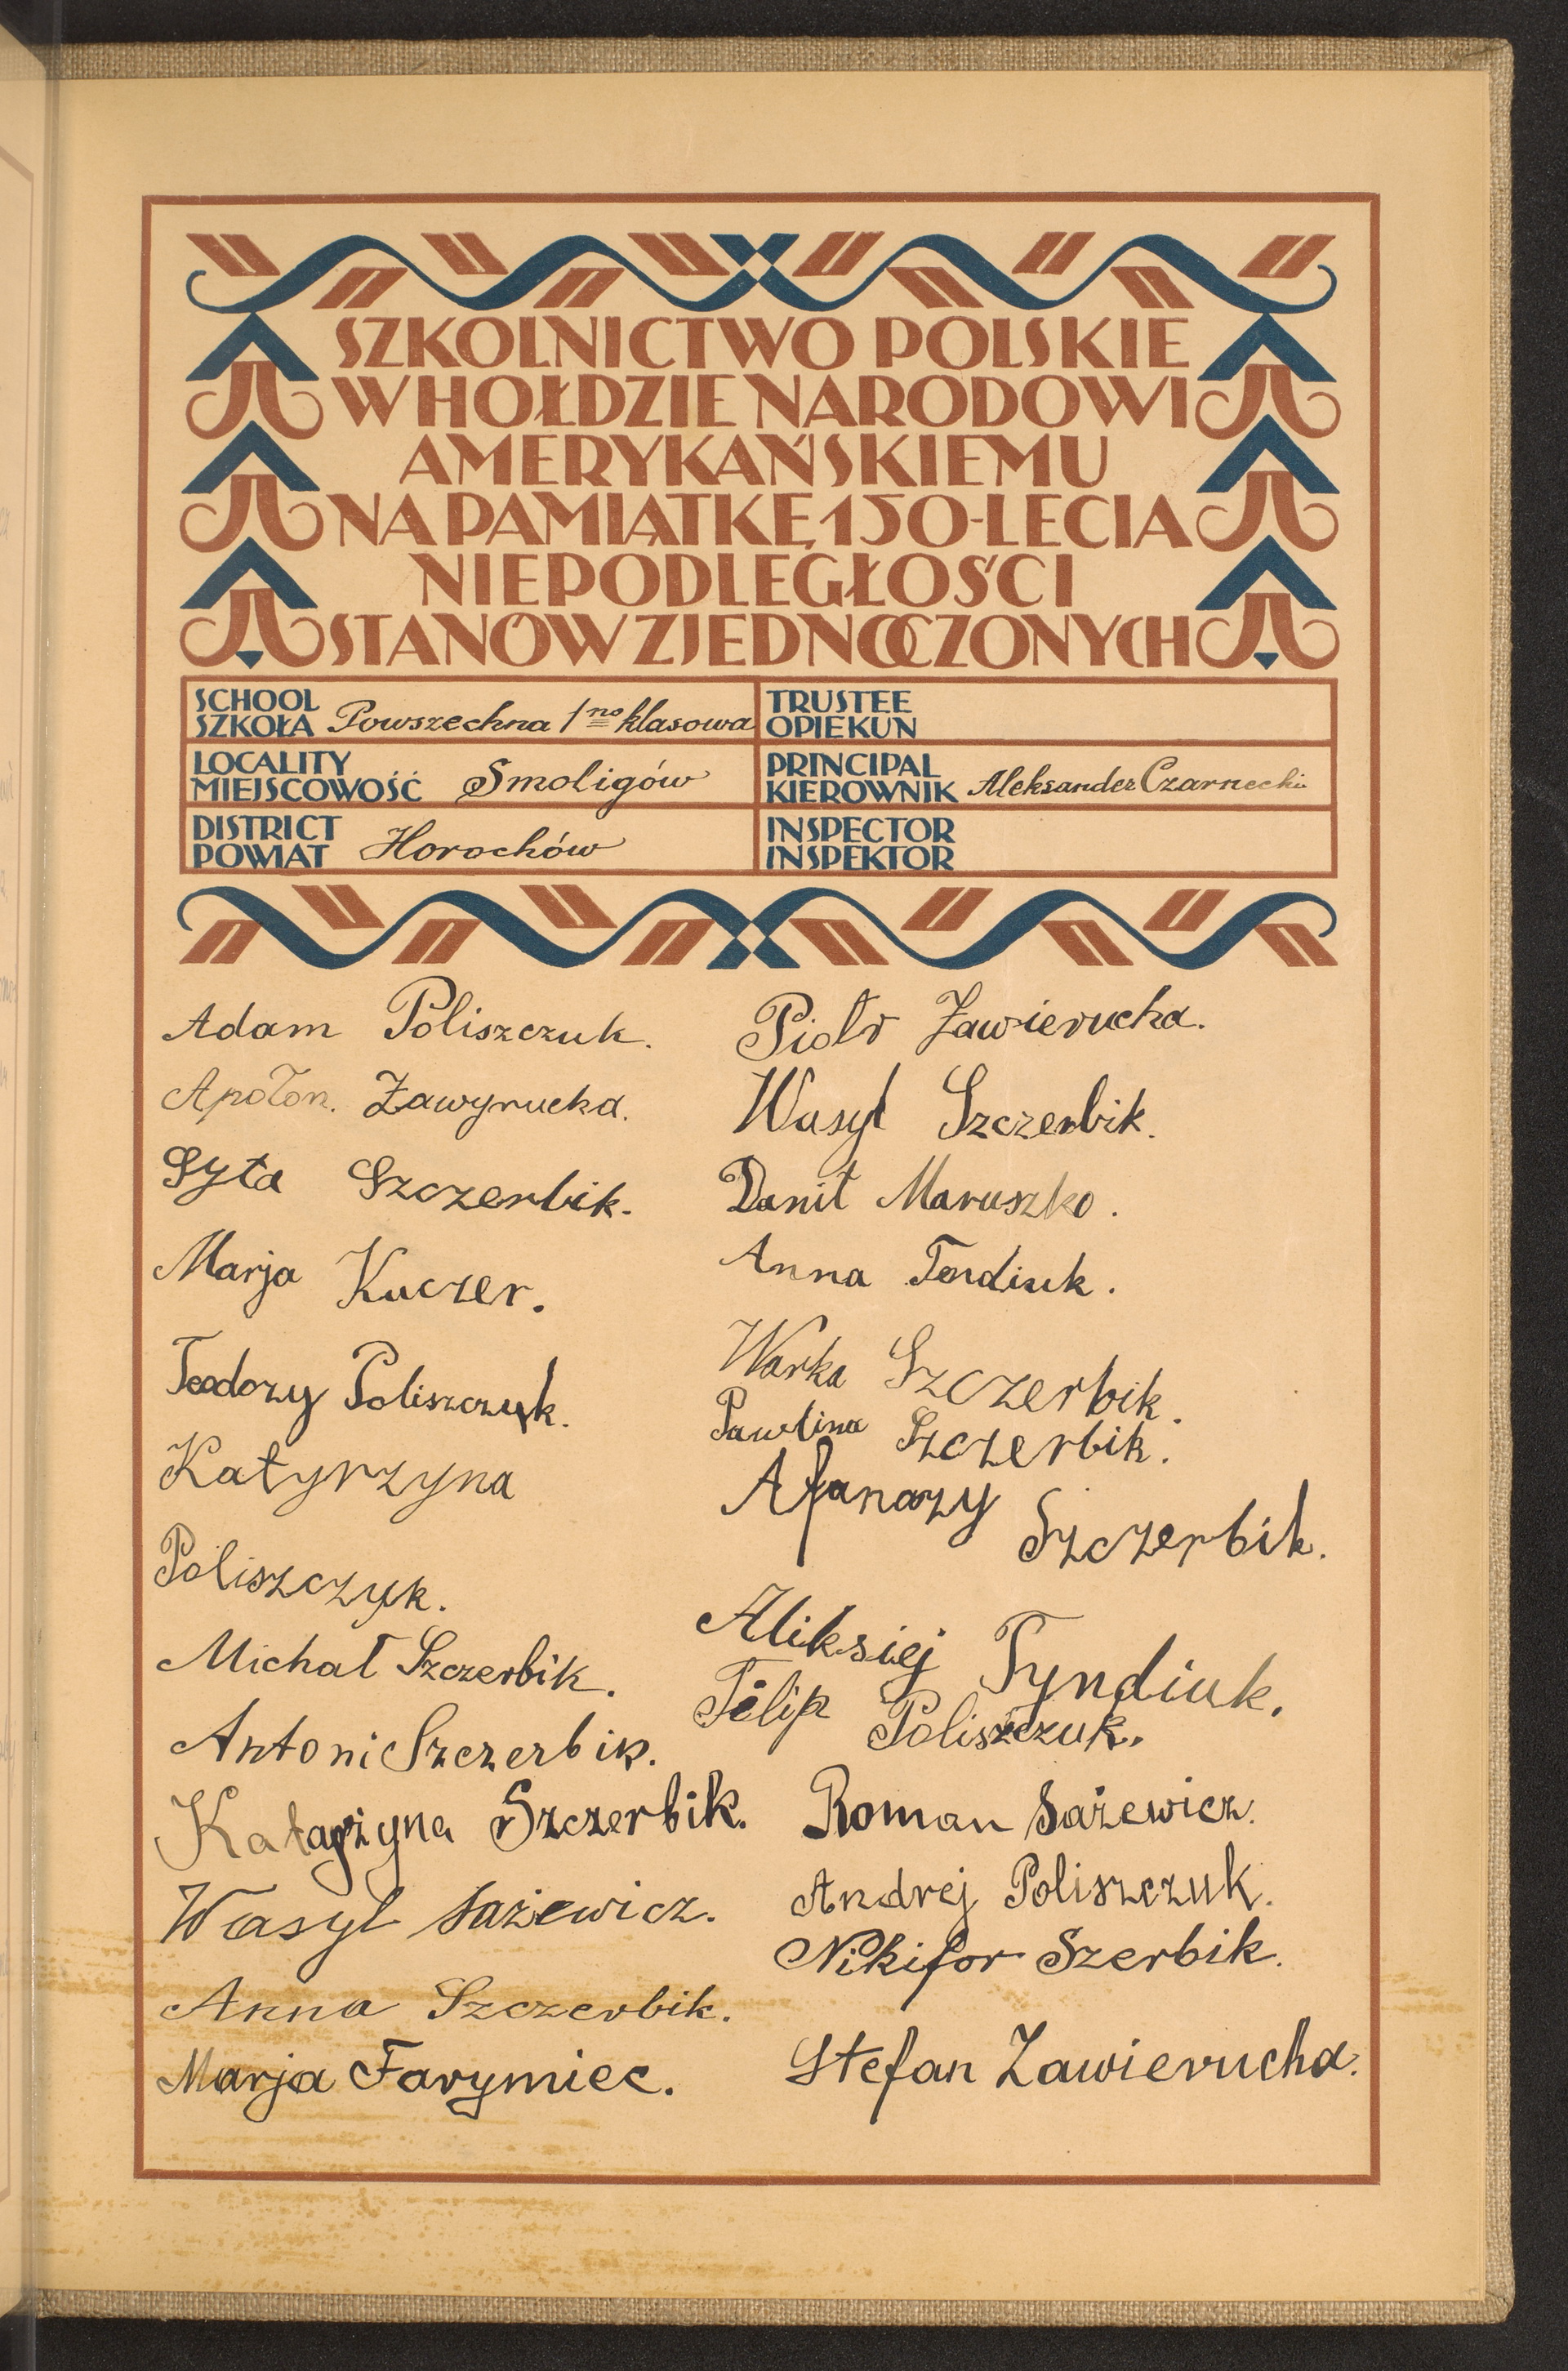 SZKOLNICTWO POLSKIE
W HOŁDZIE NARODOWI
AMERYKAŃSKIEMU
NA PAMIĄTKĘ 150-LECIA
NIEPODLEGŁOŚCI
STANÓW ZJEDNOCZONYCH
SCHOOL
SZKOŁA Powszechna 1no klasowa
LOCALITY
MIEJSCOWOŚĆ Smoligów
DISTRICT
POWIAT Horochów
TRUSTEE
OPIEKUN
PRINCIPAL
KIEROWNIK Aleksander Czarnecki
INSPECTOR
INSPEKTOR
Adam Poliszczuk.
Apołon. Zawyrucha.
Syta Szczerbik.
Marja Kuczer.
Teodozy Poliszczuk.
Katyrzyna
Poliszczyk.
Michał Szczerbik.
Antoni Szczerbik.
Katarzyna Szczerbik.
Wasyl Sażewicz.
Anna Szczerbik.
Marja Farymiec.
Piotr Zawierucha.
Wasyl Szczerbik.
Danił Maruszko.
Anna Tendiuk.
Warka Szczerbik.
Pawlina Szczerbik.
Afanazy Szczerbik.
Aliksiej Tyndiuk.
Filip Poliszczuk.
Roman Sażewicz.
Andrej Poliszczuk.
Nikifor Szerbik.
Stefan Zawierucha.